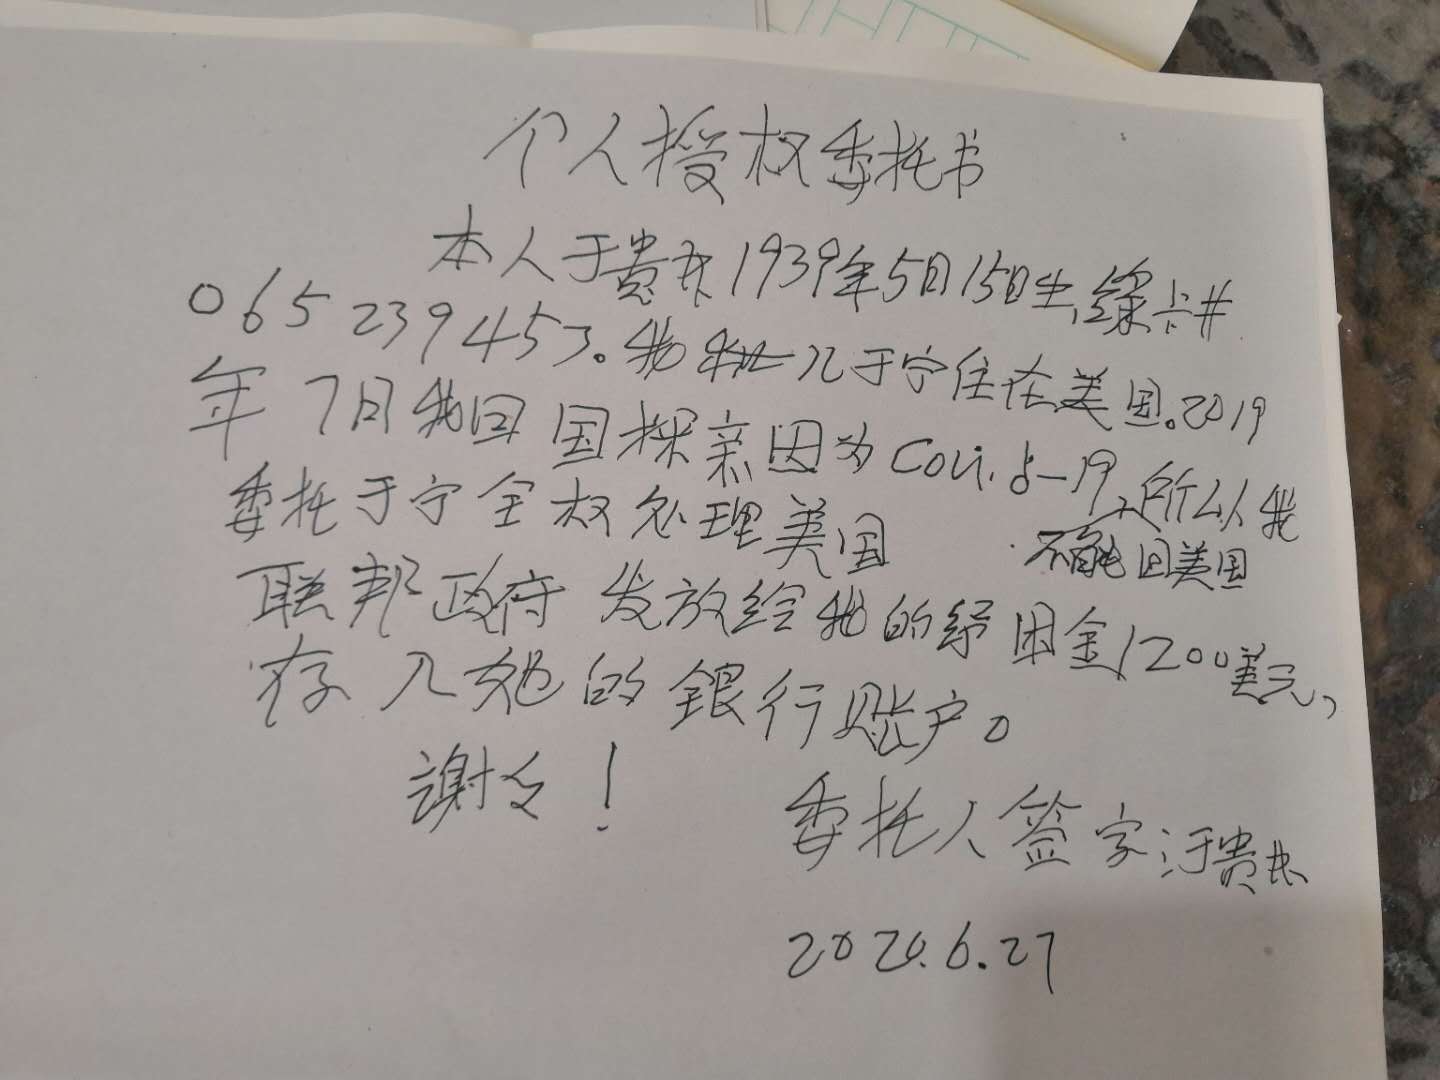 个人授权委托书
本人于贵 1939年5月15日生,绿卡#
065239453。我 儿于宁住在美国。2019
年7月我回国探亲因为Covid-19,所以我
不能回美国
委托于宁全权处理美国
联邦政府发放给我的纾困金1200美元,
存入她的銀行账户。
謝々!
委托人签字:于贵
2020.6.27